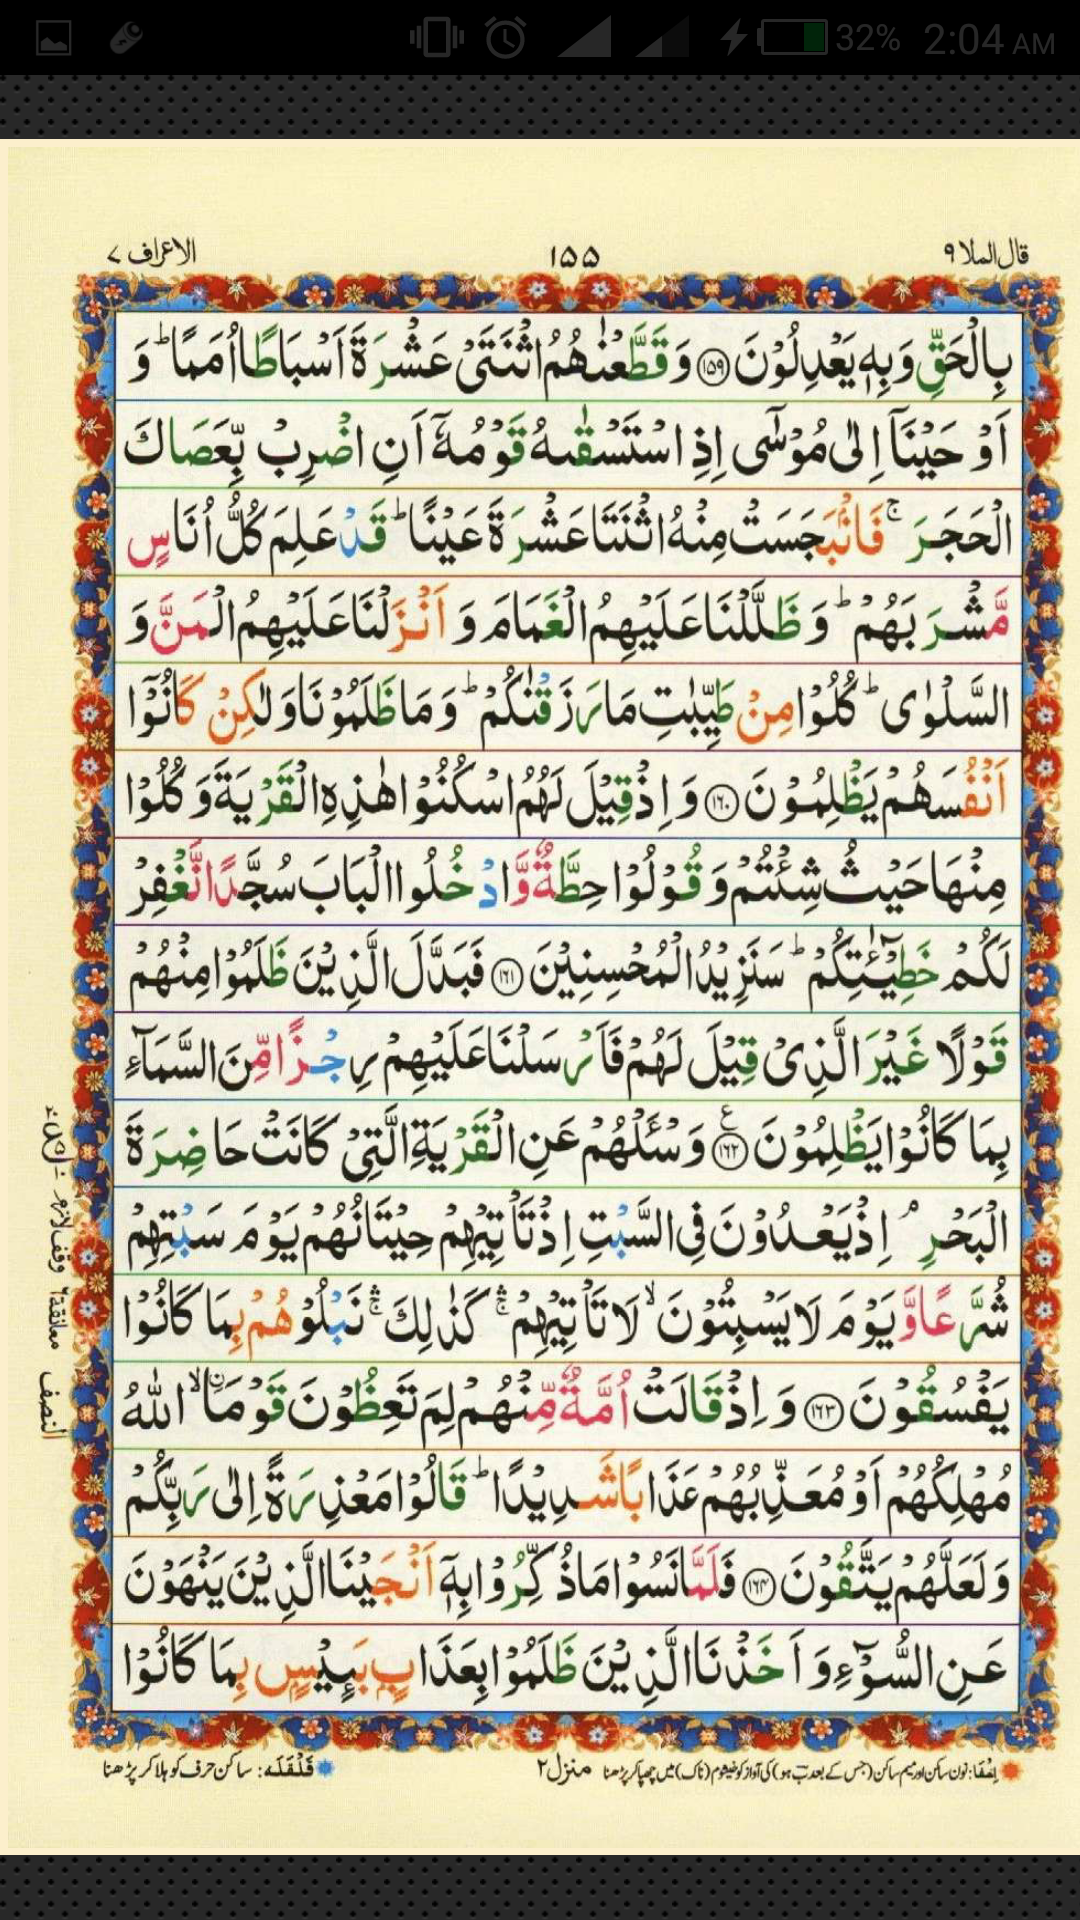 32% 2:04 AM
قال الملا ٩ ١٥٥ الاعراف ٧
بِالْحَقِّ وَبِهٖ يَعْدِلُوْنَ ﴿۱۵۹﴾ وَقَطَّعْنٰهُمُ اثْنَتَیْ عَشْرَةَ اَسْبَاطًا اُمَمًا ؕ وَ
اَوْحَيْنَاۤ اِلٰی مُوْسٰۤی اِذِ اسْتَسْقٰىهُ قَوْمُهٗۤ اَنِ اضْرِبْ بِّعَصَاكَ
الْحَجَرَ ۚ فَانْۢبَجَسَتْ مِنْهُ اثْنَتَا عَشْرَةَ عَيْنًا ؕ قَدْ عَلِمَ كُلُّ اُنَاسٍ
مَّشْرَبَهُمْ ؕ وَظَلَّلْنَا عَلَيْهِمُ الْغَمَامَ وَ اَنْزَلْنَا عَلَيْهِمُ الْمَنَّ وَ
السَّلْوٰی ؕ كُلُوْا مِنْ طَيِّبٰتِ مَا رَزَقْنٰكُمْ ؕ وَمَا ظَلَمُوْنَا وَلٰكِنْ كَانُوْۤا
اَنْفُسَهُمْ يَظْلِمُوْنَ ﴿۱۶۰﴾ وَ اِذْ قِيْلَ لَهُمُ اسْكُنُوْا هٰذِهِ الْقَرْيَةَ وَكُلُوْا
مِنْهَا حَيْثُ شِئْتُمْ وَقُوْلُوْا حِطَّةٌ وَّادْخُلُوا الْبَابَ سُجَّدًا نَّغْفِرْ
لَكُمْ خَطِيْٓـٰٔتِكُمْ ؕ سَنَزِيْدُ الْمُحْسِنِيْنَ ﴿۱۶۱﴾ فَبَدَّلَ الَّذِيْنَ ظَلَمُوْا مِنْهُمْ
قَوْلًا غَيْرَ الَّذِیْ قِيْلَ لَهُمْ فَاَرْسَلْنَا عَلَيْهِمْ رِجْزًا مِّنَ السَّمَآءِ
بِمَا كَانُوْا يَظْلِمُوْنَ ﴿۱۶۲﴾ ع وَسْـَٔلْهُمْ عَنِ الْقَرْيَةِ الَّتِیْ كَانَتْ حَاضِرَةَ
الْبَحْرِ ۘ اِذْ يَعْدُوْنَ فِی السَّبْتِ اِذْ تَاْتِيْهِمْ حِيْتَانُهُمْ يَوْمَ سَبْتِهِمْ
شُرَّعًا وَّيَوْمَ لَا يَسْبِتُوْنَ ۙ لَا تَاْتِيْهِمْ ۛۚ كَذٰلِكَ ۛۚ نَبْلُوْهُمْ بِمَا كَانُوْا
يَفْسُقُوْنَ ﴿۱۶۳﴾ وَ اِذْ قَالَتْ اُمَّةٌ مِّنْهُمْ لِمَ تَعِظُوْنَ قَوْمَاۨ ۙ اللّٰهُ
مُهْلِكُهُمْ اَوْ مُعَذِّبُهُمْ عَذَابًا شَدِيْدًا ؕ قَالُوْا مَعْذِرَةً اِلٰی رَبِّكُمْ
وَلَعَلَّهُمْ يَتَّقُوْنَ ﴿۱۶۴﴾ فَلَمَّا نَسُوْا مَا ذُكِّرُوْا بِهٖۤ اَنْجَيْنَا الَّذِيْنَ يَنْهَوْنَ
عَنِ السُّوْٓءِ وَ اَخَذْنَا الَّذِيْنَ ظَلَمُوْا بِعَذَابٍۭ بَـِٔيْسٍۭ بِمَا كَانُوْا
وقف لازم
معانقة ٦
النصف
اِخفَا: نون ساکن اور میم ساکن (جس کے بعد ب ہو) کی آواز کو خیشوم (ناک) میں چھپا کر پڑھنا منزل ٢ قَلْقَلَه: ساکن حرف کو ہلا کر پڑھنا